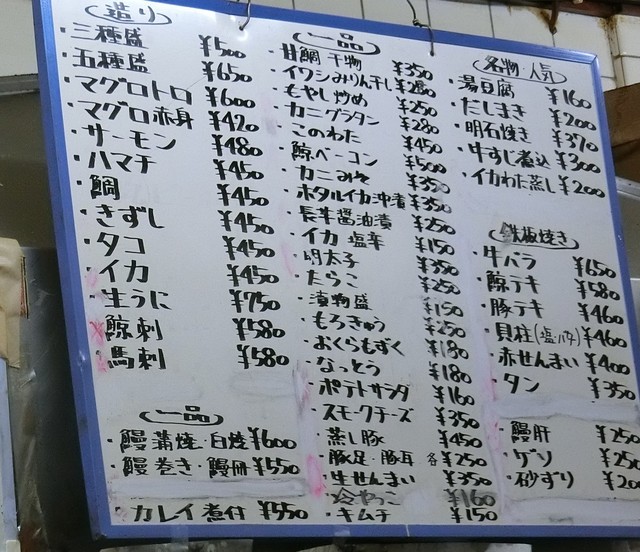 造り
・三種盛 ¥500
・五種盛 ¥650
・マグロトロ ¥600
・マグロ赤身 ¥420
・サーモン ¥480
・ハマチ ¥450
・鯛 ¥450
・きずし ¥450
・タコ ¥450
・イカ ¥450
・生うに ¥750
・鯨刺 ¥580
・馬刺 ¥580
一品
・鰻蒲焼・白焼 ¥600
・鰻巻き・鰻冊 ¥550
・カレイ煮付 ¥550
一品
・甘鯛干物 ¥350
・イワシみりん干し ¥280
・もやし炒め ¥250
・カニグラタン ¥280
・このわた ¥450
・鯨ベーコン ¥500
・カニみそ ¥350
・ホタルイカ沖漬 ¥350
・長芋醤油漬 ¥250
・イカ塩辛 ¥150
・明太子 ¥350
・たらこ ¥250
・漬物盛 ¥150
・もろきゅう ¥250
・おくらもずく ¥180
・なっとう ¥180
・ポテトサラダ ¥160
・スモークチーズ ¥350
・蒸し豚 ¥450
・豚足・豚耳 各¥250
・生せんまい ¥350
・冷やっこ ¥160
・キムチ ¥150
名物・人気
・湯豆腐 ¥160
・だしまき ¥200
・明石焼き ¥370
・牛すじ煮込 ¥300
・イカわた蒸し ¥200
鉄板焼き
・牛バラ ¥650
・鯨テキ ¥580
・豚テキ ¥460
・貝柱(塩・バタ) ¥460
・赤せんまい ¥400
・タン ¥350
・鰻肝 ¥250
・ゲソ ¥250
・砂ずり ¥200